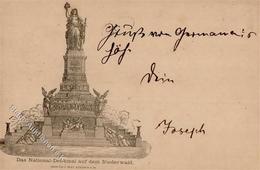 Gruß von Germania's
höh.
Dein
Joseph
Das National-Denkmal auf dem Niederwald.